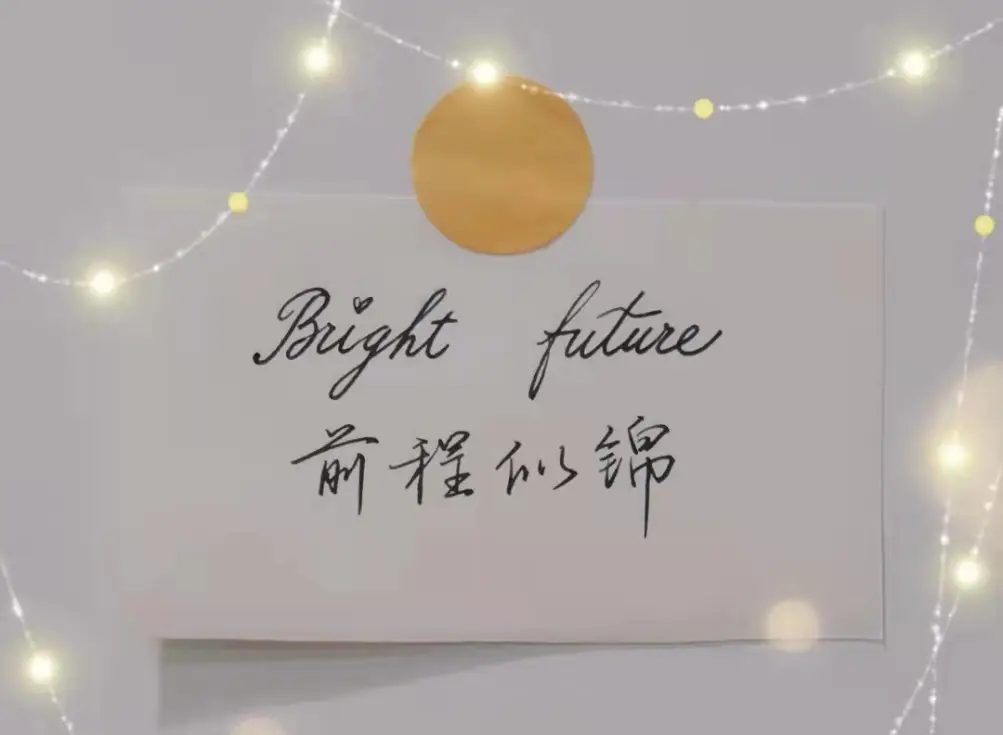 Bright future
前程似锦